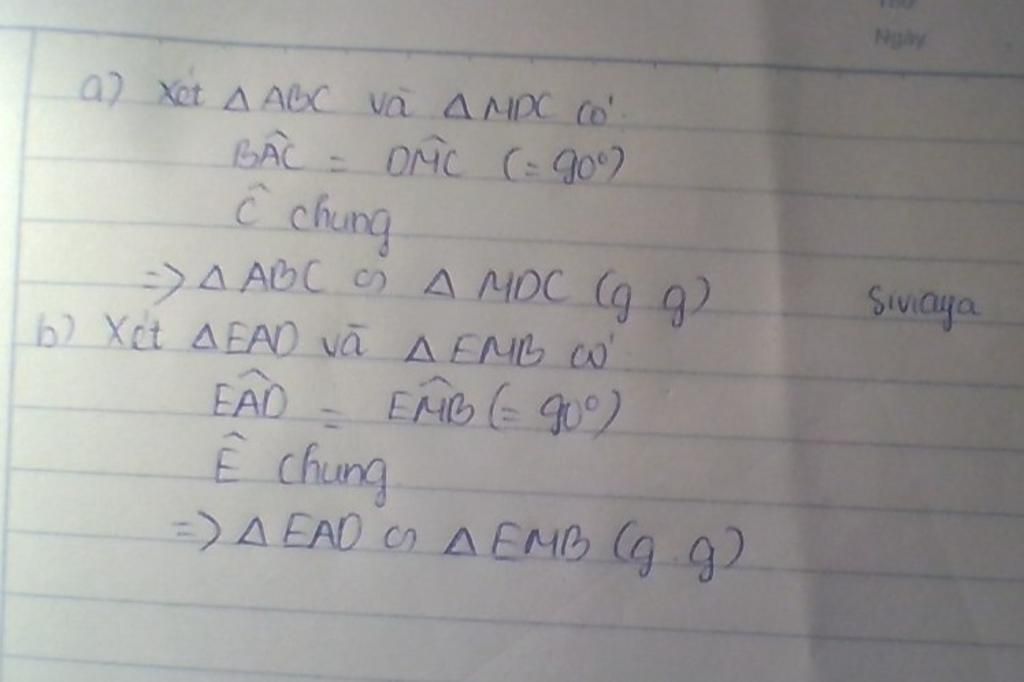 Ngày
a) Xét Δ ABC và Δ MDC có
BÂC = DM̂C (= 90°)
Ĉ chung
=> Δ ABC ∽ Δ MDC (g g)
Siviaya
b) Xét Δ EAD và Δ EMB có
EÂD = EM̂B (= 90°)
Ê chung
=> Δ EAD ∽ Δ EMB (g.g)